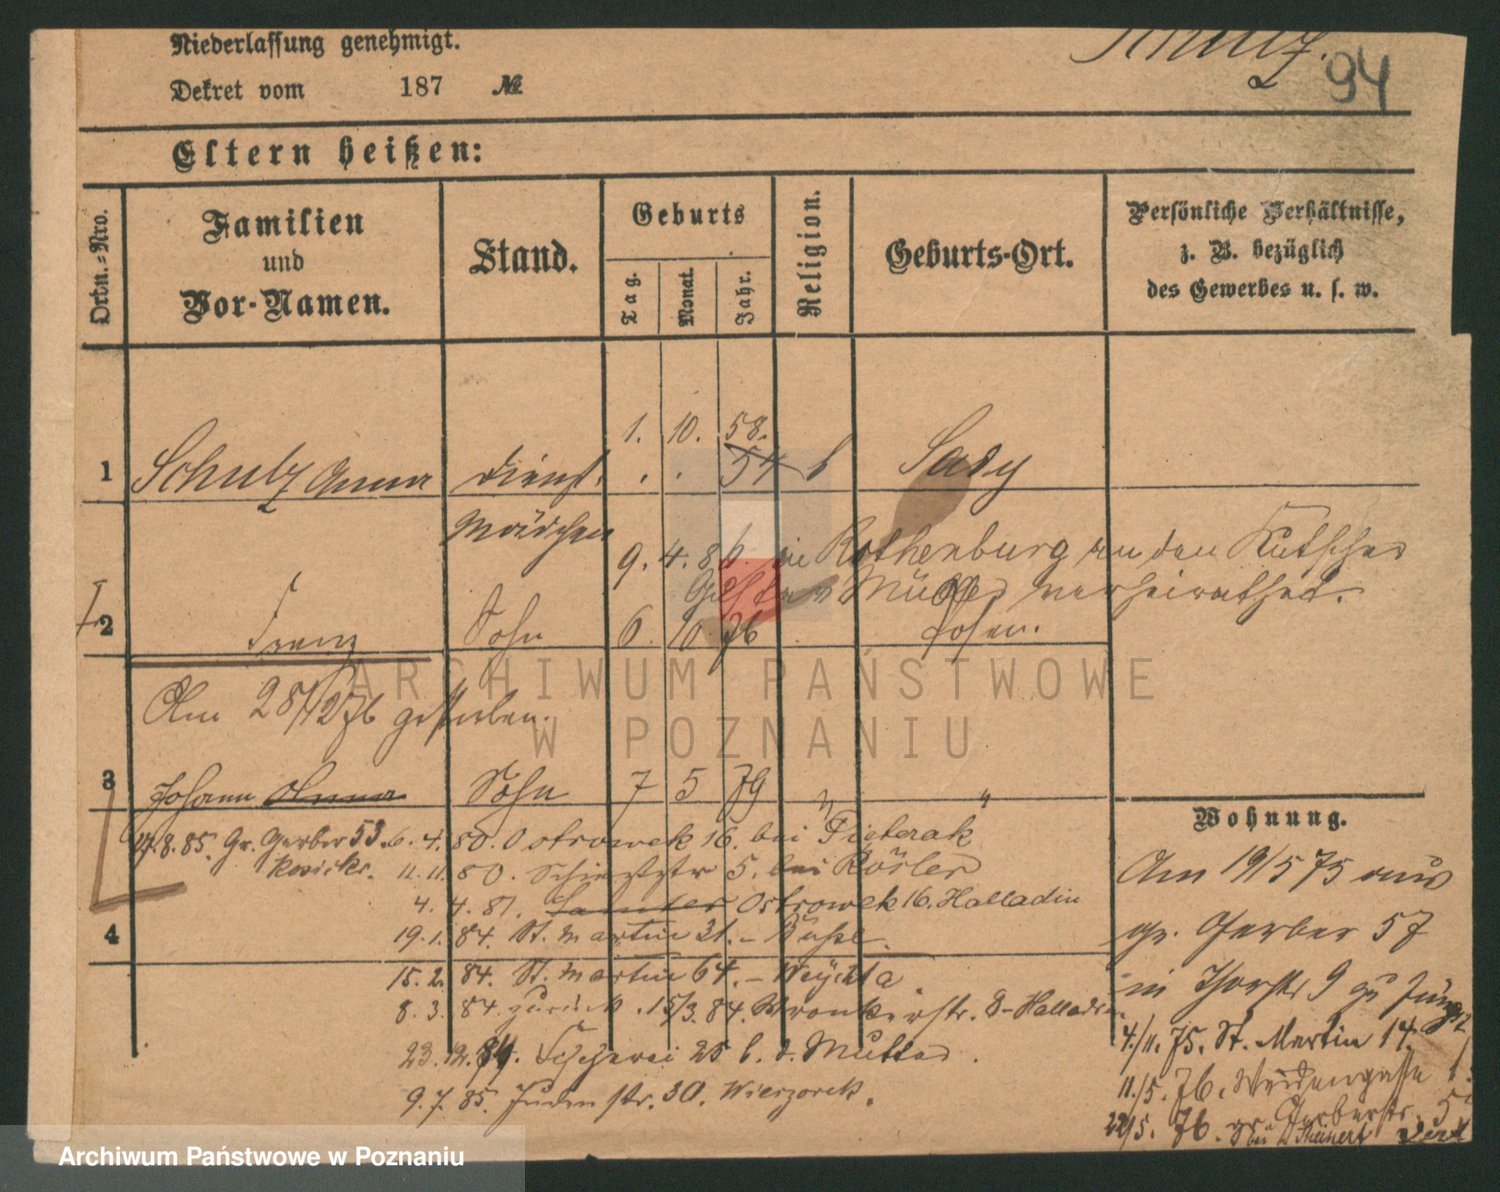 Niederlassung genehmigt.
Dekret vom 187 №
Schulz.
94
Eltern heißen:
Ordn.=Nro.
Familien
und
Vor-Namen.
Stand.
Geburts
Tag.
Monat.
Jahr.
Religion.
Geburts-Ort.
Persönliche Verhältnisse,
z. B. bezüglich
des Gewerbes u. s. w.
1. 10. 58.
1 Schulz Anna Dienst 54 Sady
Mädchen
9. 4. 86 in Rothenburg an den Kutscher
Müller verheirathet.
2 Franz Sohn 6. 10 76 Posen.
Am 28/12 76 gestorben.
3 Johann Anna Sohn 7 5 79 " "
Wohnung.
27.8.85. Gr. Gerber 53. 6. 4. 80. Ostrowek 16. bei Pieterak
11. 11. 80. 5. bei Rösler
4. 4. 81. Ostrowek 16. Halladin
4 19. 1. 84. St. Martin 31. -
15. 2. 84. St. Martin 64. - Weychta
8. 3. 84. zurück. 15/3. 84. Wronkerstr. 8 -
23. 12. 84. Fischerei 25 b. d. Mutter.
9. 7. 85. Judenstr. 30. Wieczorek.
Am 19/5 75 aus
gr. Gerber 57
in Thorstr 9 zu
4/11. 75. St. Martin 14.
11/5. 76. Weidengasse
22/5. 76. gr. Gerberstr. 5
ARCHIWUM PAŃSTWOWE
W POZNANIU
Archiwum Państwowe w Poznaniu